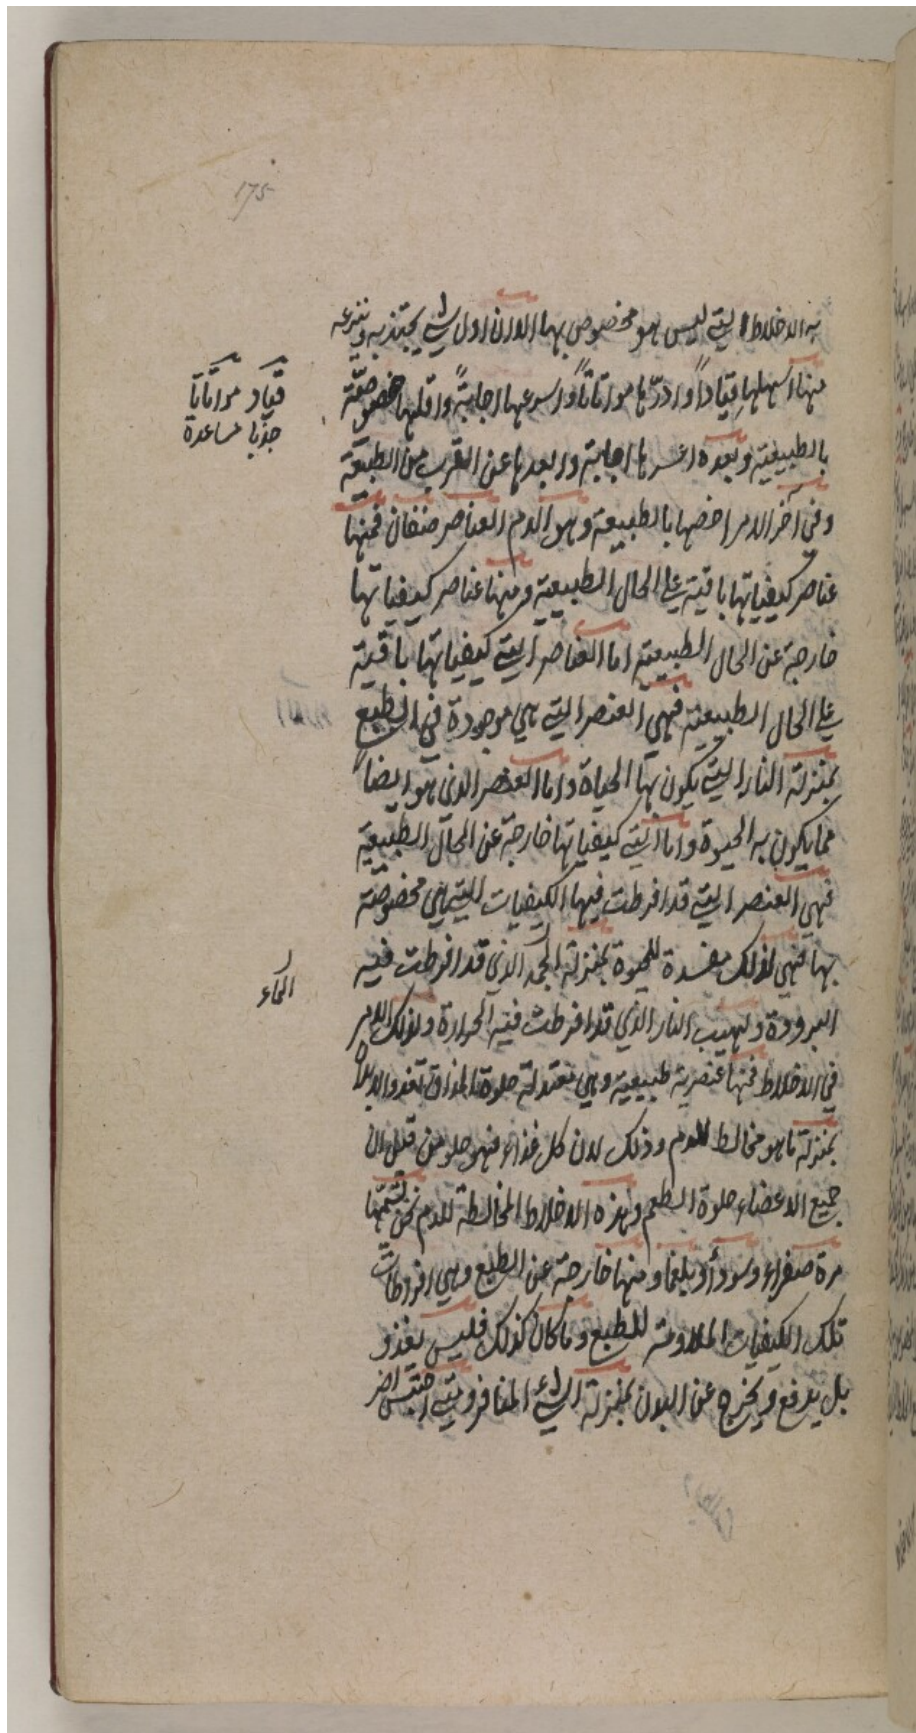 175
به الاخلاط التي ليس هو مخصوص بها الا ان اول شي يجتذبه وينزعه
منها اسهلها قيادا وادرّها مواتاتاً واسرعها اجابةً واقلها خصوصّية
قياد مواتاتا
جذبا مساعدة
بالطبيعة وبعده اعسرها اجابة وابعدها عن القرب من الطبيعة
وفي آخر الامر اخصها بالطبيعة وهو الدم العناصر صنفان فمنها
عناصر كيفياتها باقية على الحال الطبيعية ومنها عناصر كيفياتها
خارجة عن الحال الطبيعية اما العناصر التي كيفياتها باقية
على الحال الطبيعية فهي العنصر التي هي موجودة في الطبع
بمنزلة النار التي يكون بها الحياة واما العنصر الذي هو ايضاً
مما يكون به الحيوة واما التي كيفياتها خارجة عن الحال الطبيعية
فهي العنصر التي قد افرطت فيها الكيفيات التي هي مخصوصة
بها فهي لذلك مفسدة للحيوة بمنزلة الجمد الذي قد افرطت فيه
الماء
البرودة ولهيب النار الذي قد افرطت فيه الحرارة ولذلك الامر
في الاخلاط فمنها عنصرية طبيعية وهي معتدلة حلوة المذاق تغذوا الابدان
بمنزلة ما هو مخالط للدم وذلك لان كل غذاء فهو حلو من قبل ان
جميع الاعضاء حلوة الطعم وهذه الاخلاط المخالطة للدم نحن نسمّيها
مرة صفراء وسودأ وبلغما ومنها خارجة عن الطبع وهي افراطات
تلك الكيفيات الملاومة للطبع وما كان كذلك فليس يغذو
بل يدفع ويخرج عن البدن بمنزلة الشيء المنافر ومتى احتبس اضر